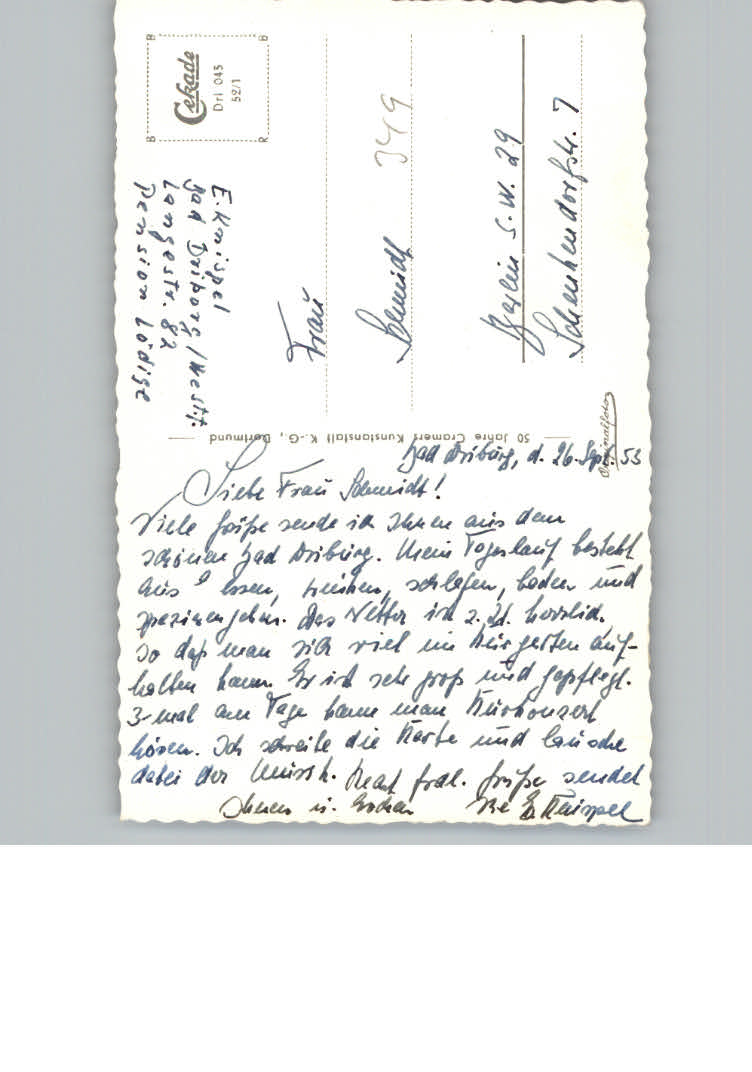 Cekade
Dri 045
52/1
E. Knispel
Bad Driburg/Westf.
Langestr. 82
Pension Lödige
Frau
Schmidt
349
Berlin S.W. 29
Schenkendorfstr. 7
50 Jahre Cramers Kunstanstalt K.-G., Dortmund
Originalfoto
Bad Driburg, d. 26. Spt. 53
Liebe Frau Schmidt!
Viele Grüße sende ich Ihnen aus dem
schönen Bad Driburg. Mein Tageslauf besteht
aus essen, trinken, schlafen, baden und
spazierengehen. Das Wetter ist z. Zt. herrlich,
so daß man sich viel im Kurgarten auf-
halten kann. Er ist sehr groß und gepflegt.
3-mal am Tage kann man Kurkonzert
hören. Ich schreibe die Karte und lausche
dabei der Musik. Recht frdl. Grüße sendet
Ihnen u. Ihre E. Knispel